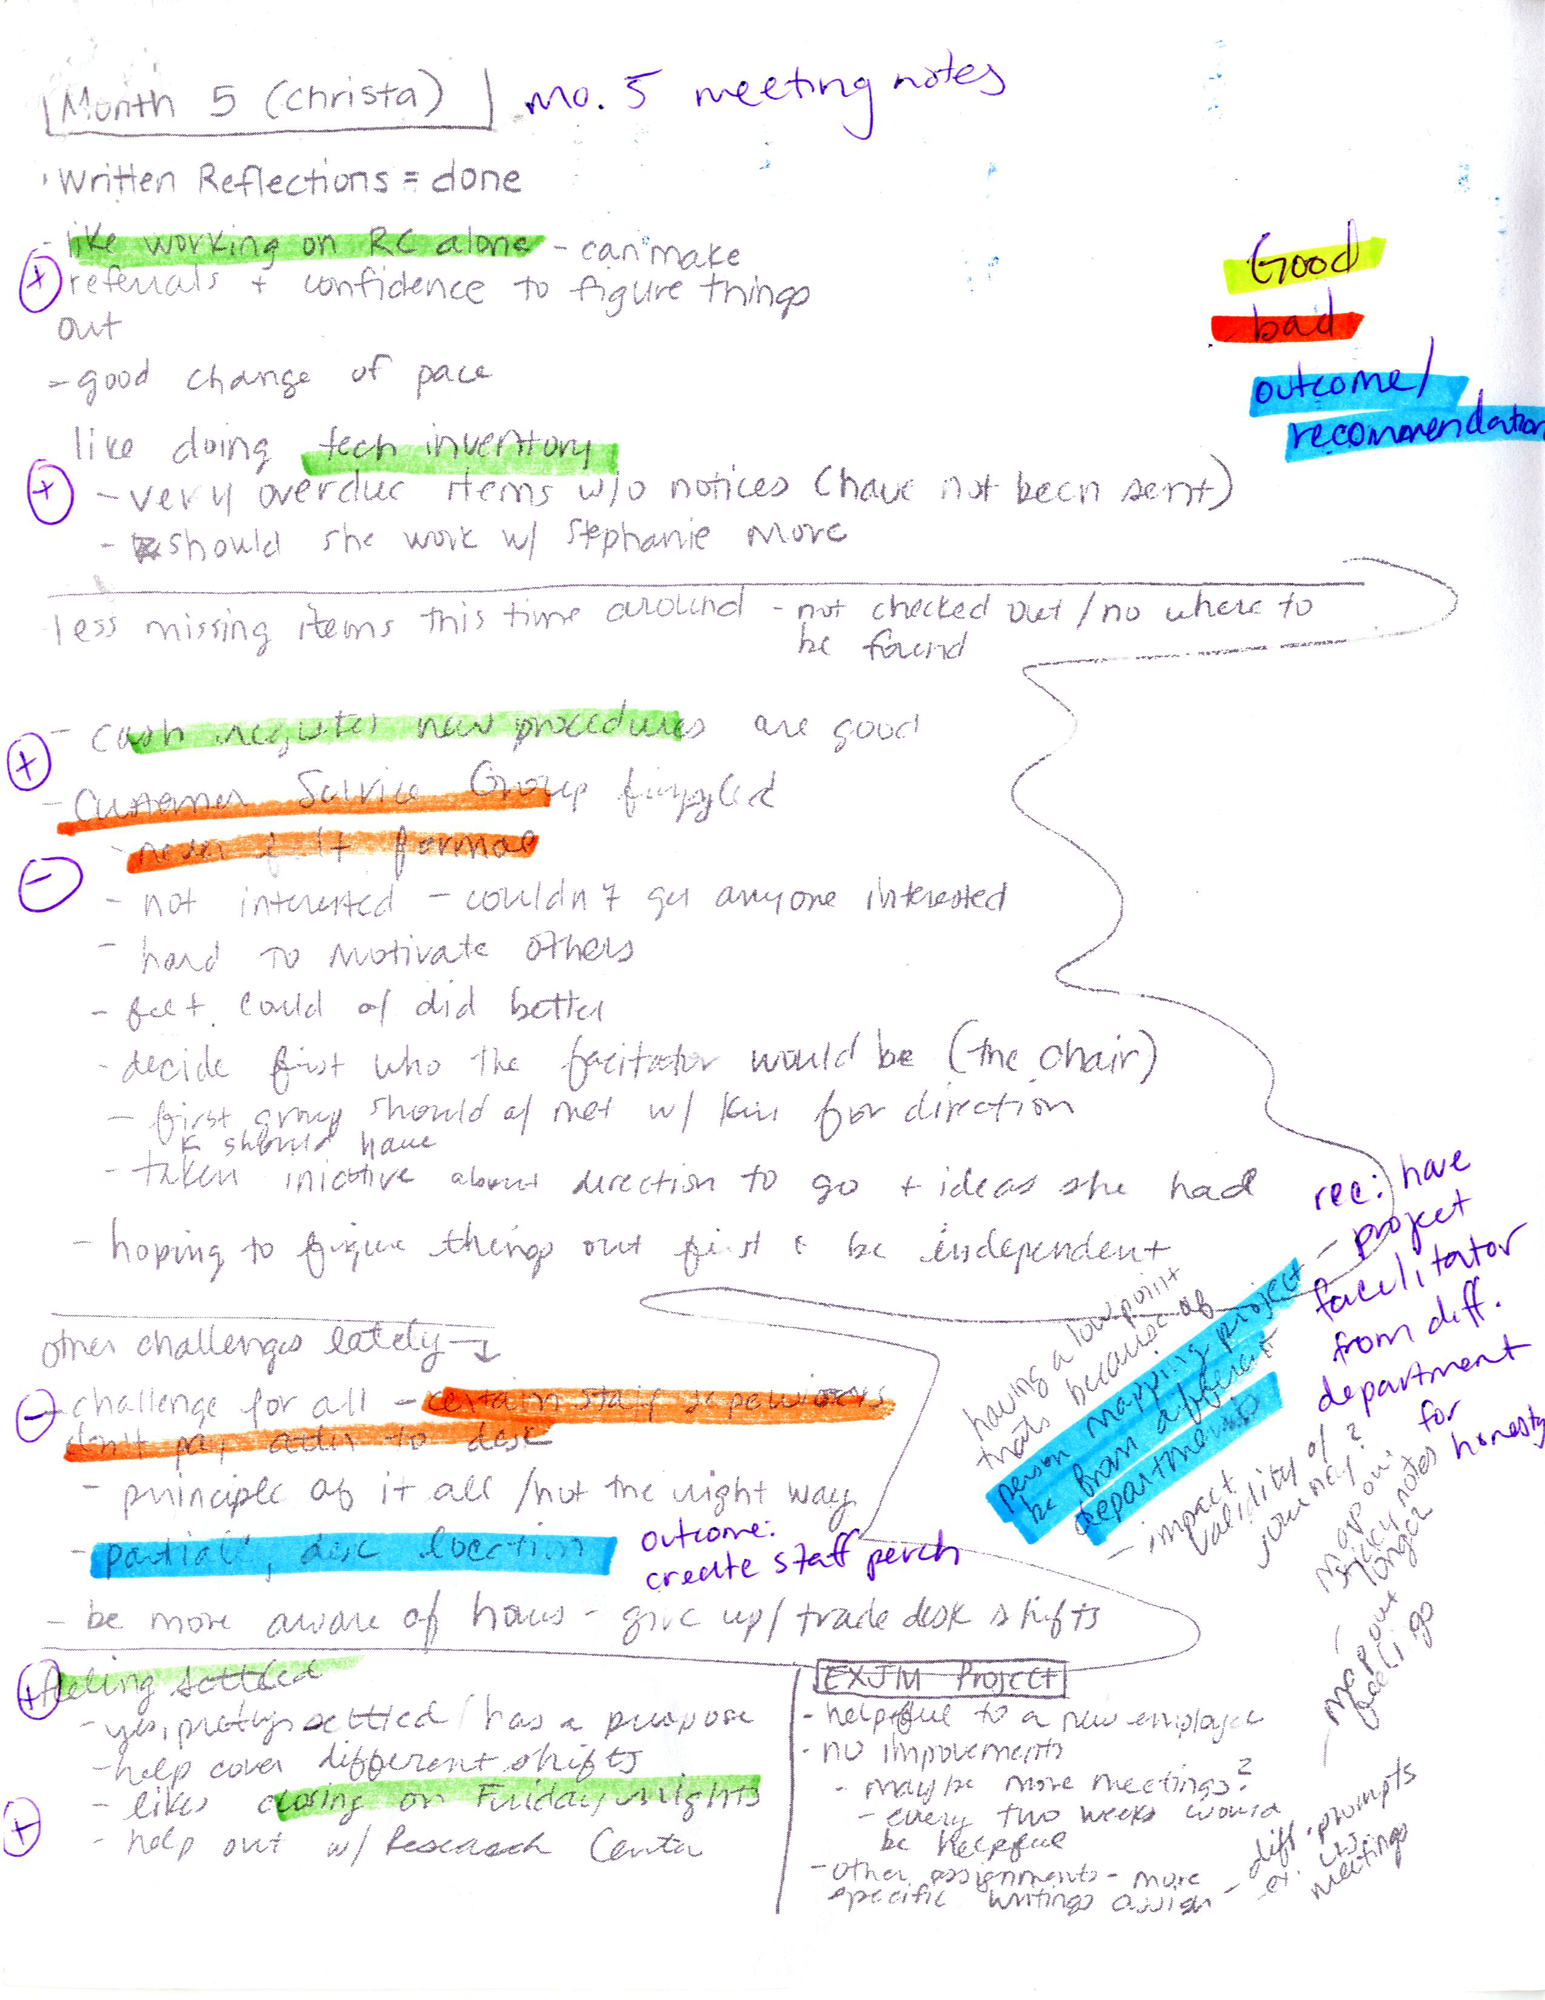 Month 5 (Christa)
mo. 5 meeting notes
· Written Reflections = done
- like working on RC alone - can make
+ referrals + confidence to figure things
out
- good change of pace
Good
bad
outcome/
recommendation
like doing tech inventory
+ - very overdue items w/o notices (have not been sent)
- should she work w/ Stephanie more
less missing items this time around - not checked out / no where to
be found
- cash register new procedures are good
+
- Customer Service Group fizzled
- never felt formal
-
- not interested - couldn't get anyone interested
- hard to motivate others
- felt could of did better
- decide first who the facitator would be (the chair)
- first group should of met w/ Kim for direction
should have
- taken iniative about direction to go + ideas she had
- hoping to figure things out first & be independent
other challenges lately →
- challenge for all - certain staff supervisors
don't pay atten to desk
- principle of it all / not the right way
- partially, desk location
outcome:
create staff perch
- be more aware of hours - give up / trade desk shifts
+ feeling settled
- yes, pretty settled / has a purpose
- help cover different shifts
- likes closing on Friday nights
+ - help out w/ Research Center
EXJM Project
- helpful to a new employee
- no improvements
- maybe more meetings?
- every two weeks would
be helpful
- other assignments - more
specific writings assign -
diff. prompts
- ex. its
meetings
having a low point
thats because of
person mapping project
be from a different
department
- impact
validity of
journey?
rec: have
- project
facilitator
from diff.
department
for
honesty
map out
sticky notes
longer
- map out
feelings